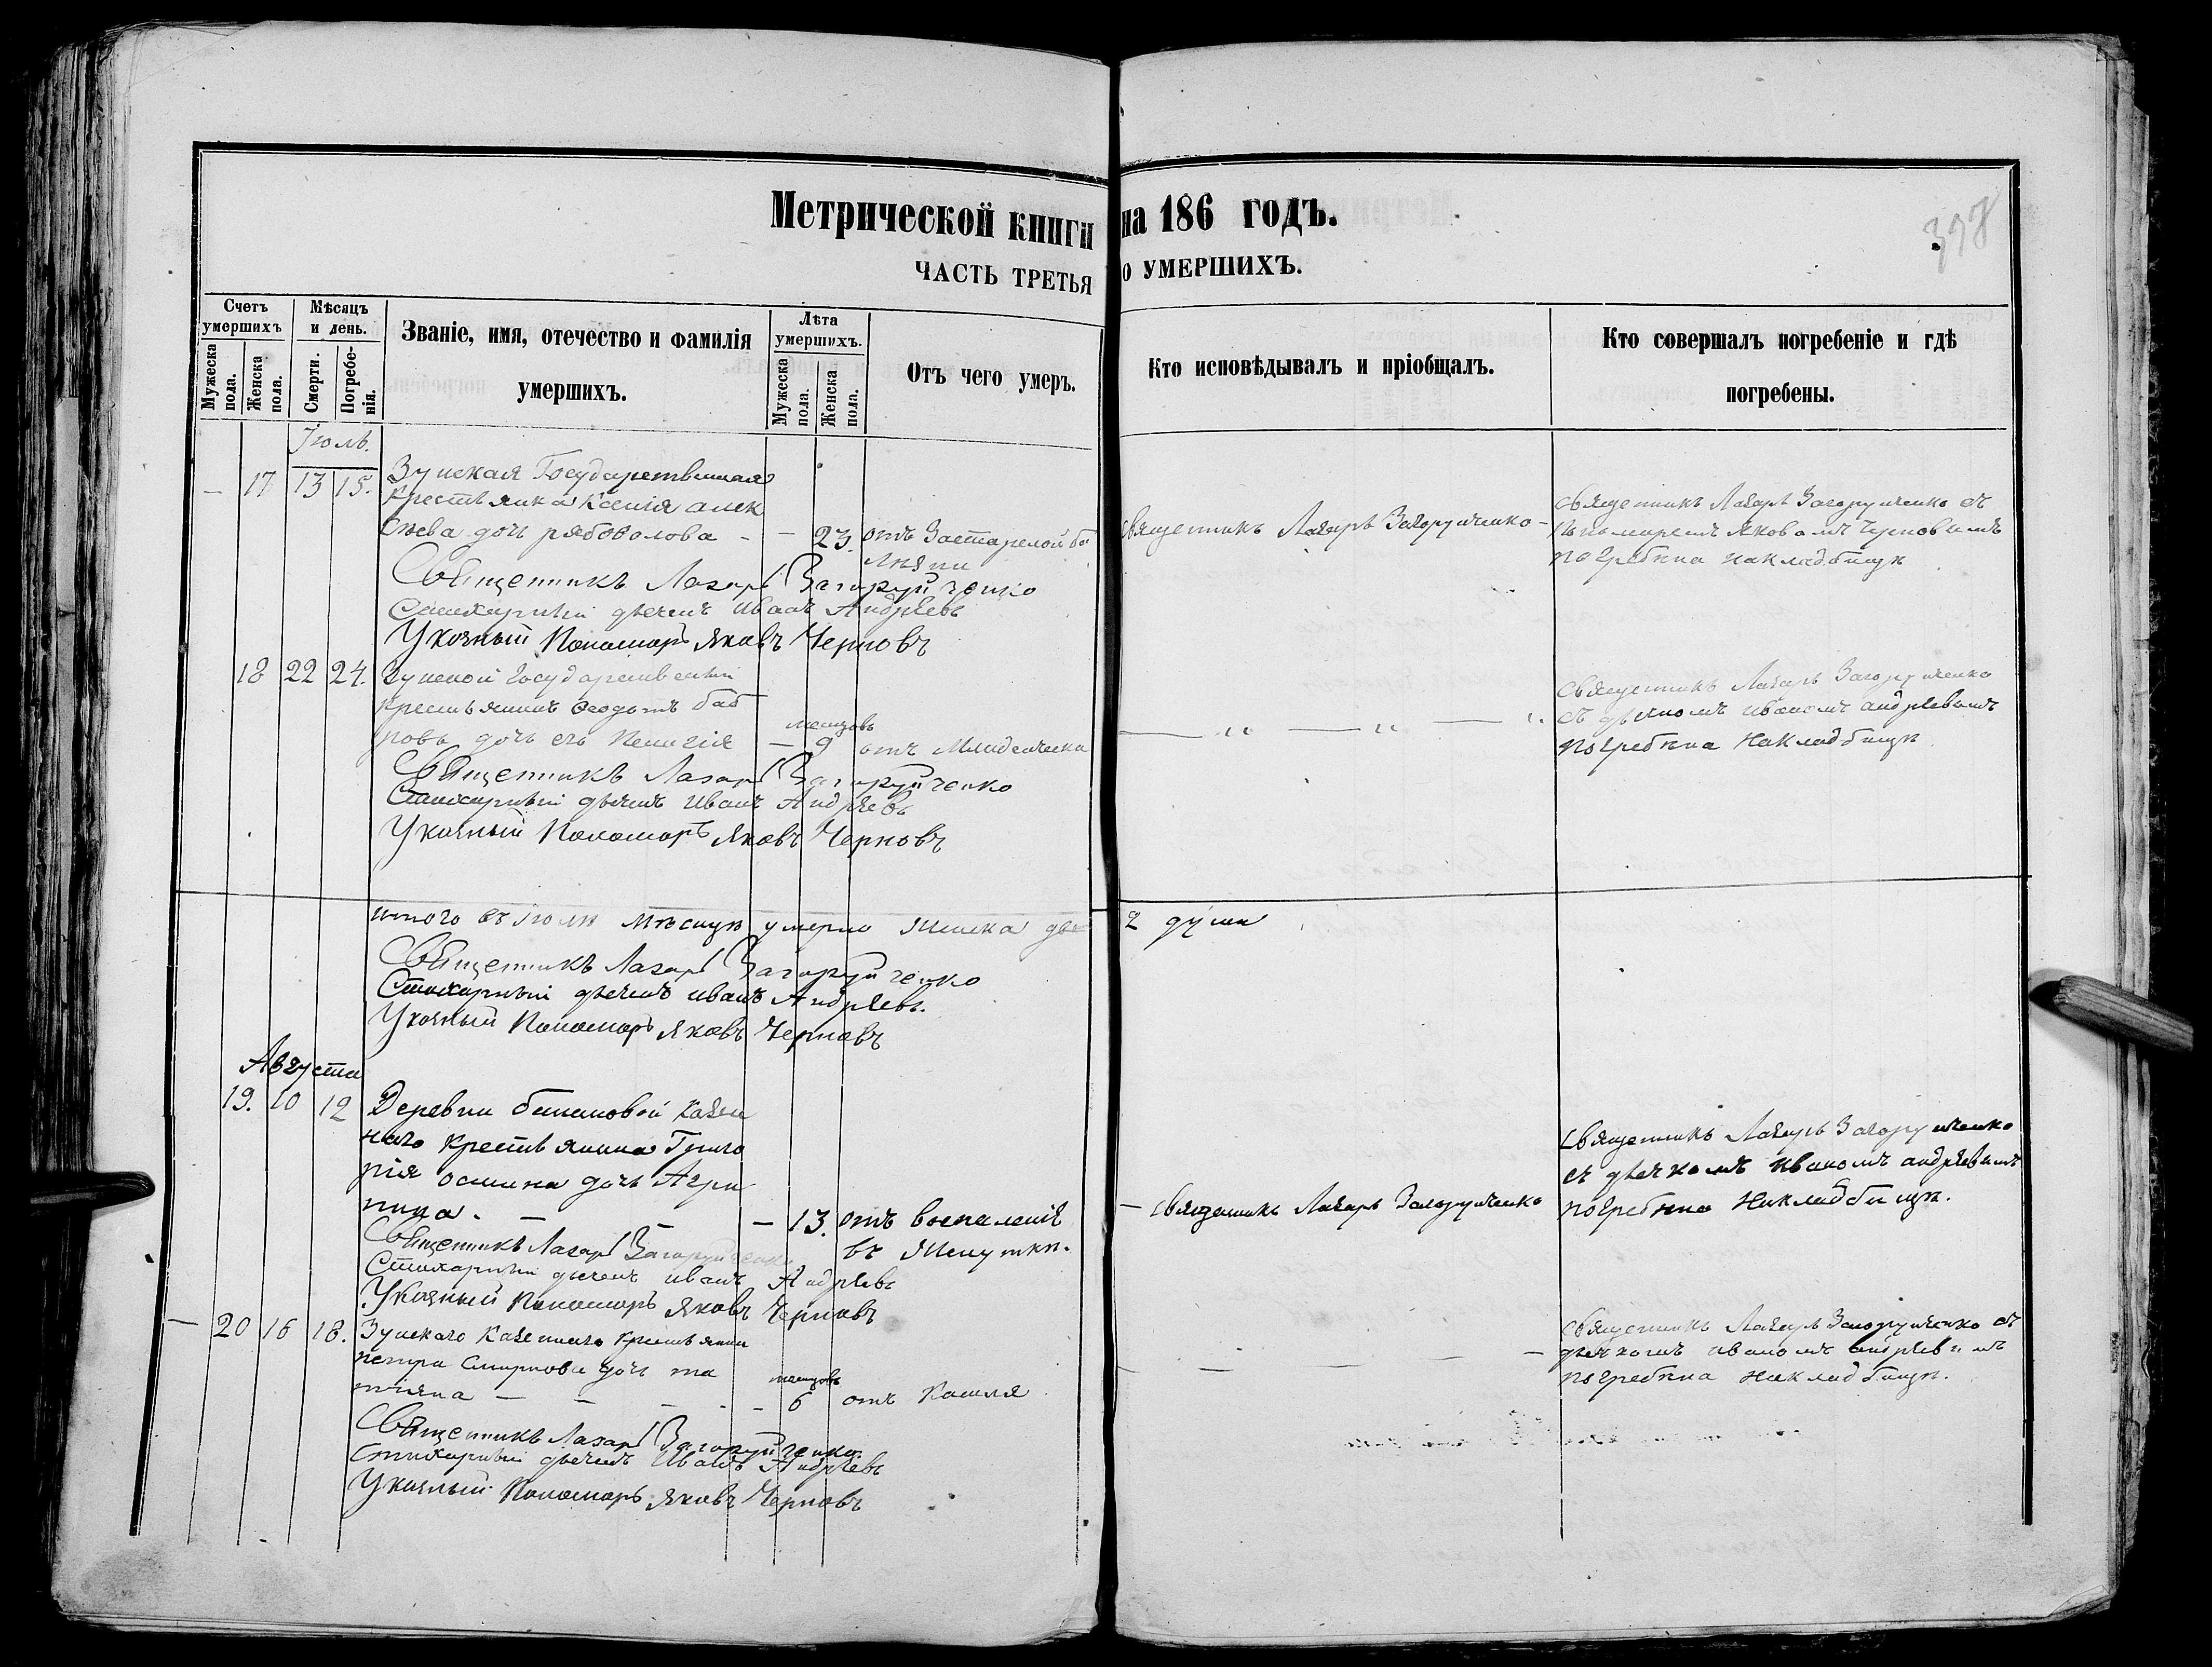 Метрической книги на 186 годъ.
398
ЧАСТЬ ТРЕТЬЯ О УМЕРШИХЪ.
Счетъ умершихъ
Мужеска пола.
Женска пола.
Мѣсяцъ и день.
Смерти.
Погребенія.
Званіе, имя, отечество и фамилія умершихъ.
Лѣта умершихъ.
Мужеска пола.
Женска пола.
Отъ чего умеръ.
Кто исповѣдывалъ и пріобщалъ.
Кто совершалъ погребеніе и гдѣ погребены.
Іюль.
— 17 13 15.
Государственная
крестьянка Ксенія алек
сѣева дочь рябоволова - — 23. отъ Застарелой бо
лѣзни
Священникъ Лазарь Загоруйченко —
Священникъ Лазарь Загоруйченко съ
пономаремъ Яковомъ Черновымъ
погребена накладбищѣ
Священникъ Лазарь Загоруйченко
Стихарный дьячекъ Иванъ Андрѣевъ
Указный Пономарь Яковъ Черновъ
18 22 24.
государственный
крестьянинъ Ѳеодотъ боб
ровъ дочь его Пелагія — месяцовъ 9 отъ Младенческа
— „ — „ — „
Священникъ Лазарь Загоруйченко
съ дьячкомъ иваномъ андрѣевымъ
погребена накладбищѣ
Священникъ Лазарь Загоруйченко
Стихарный дьячекъ Иванъ Андрѣевъ
Указный Пономарь Яковъ Черновъ
итого въ Іюлѣ мѣсяцѣ умерло женска две 2 души
Священникъ Лазарь Загоруйченко
Стихарный дьячекъ Иванъ Андрѣевъ.
Указный Пономарь Яковъ Черновъ
Августа
19. 10 12 Деревни казен
наго крестьянина Григо
рія осина дочь Агри
пина. — — — 13. отъ воспаленія
въ Желуткѣ.
— Священникъ Лазарь Загоруйченко
Священникъ Лазарь Загоруйченко
съ дьячкомъ иваномъ андрѣевымъ
погребена накладбищѣ.
Священникъ Лазарь Загоруйченко
Стихарный дьячекъ Иванъ Андрѣевъ
Указный Пономарь Яковъ Черновъ
— 20 16 18. казеннаго крестьянина
петра Смирнова дочь та
тіяна — — — - — месяцовъ 6 отъ Кашля
— — — — —
Священникъ Лазарь Загоруйченко съ
дьячкомъ иваномъ андрѣевымъ
погребена накладбищѣ.
Священникъ Лазарь Загоруйченко
Стихарный дьячекъ Иванъ Андрѣевъ
Указный Пономарь Яковъ Черновъ